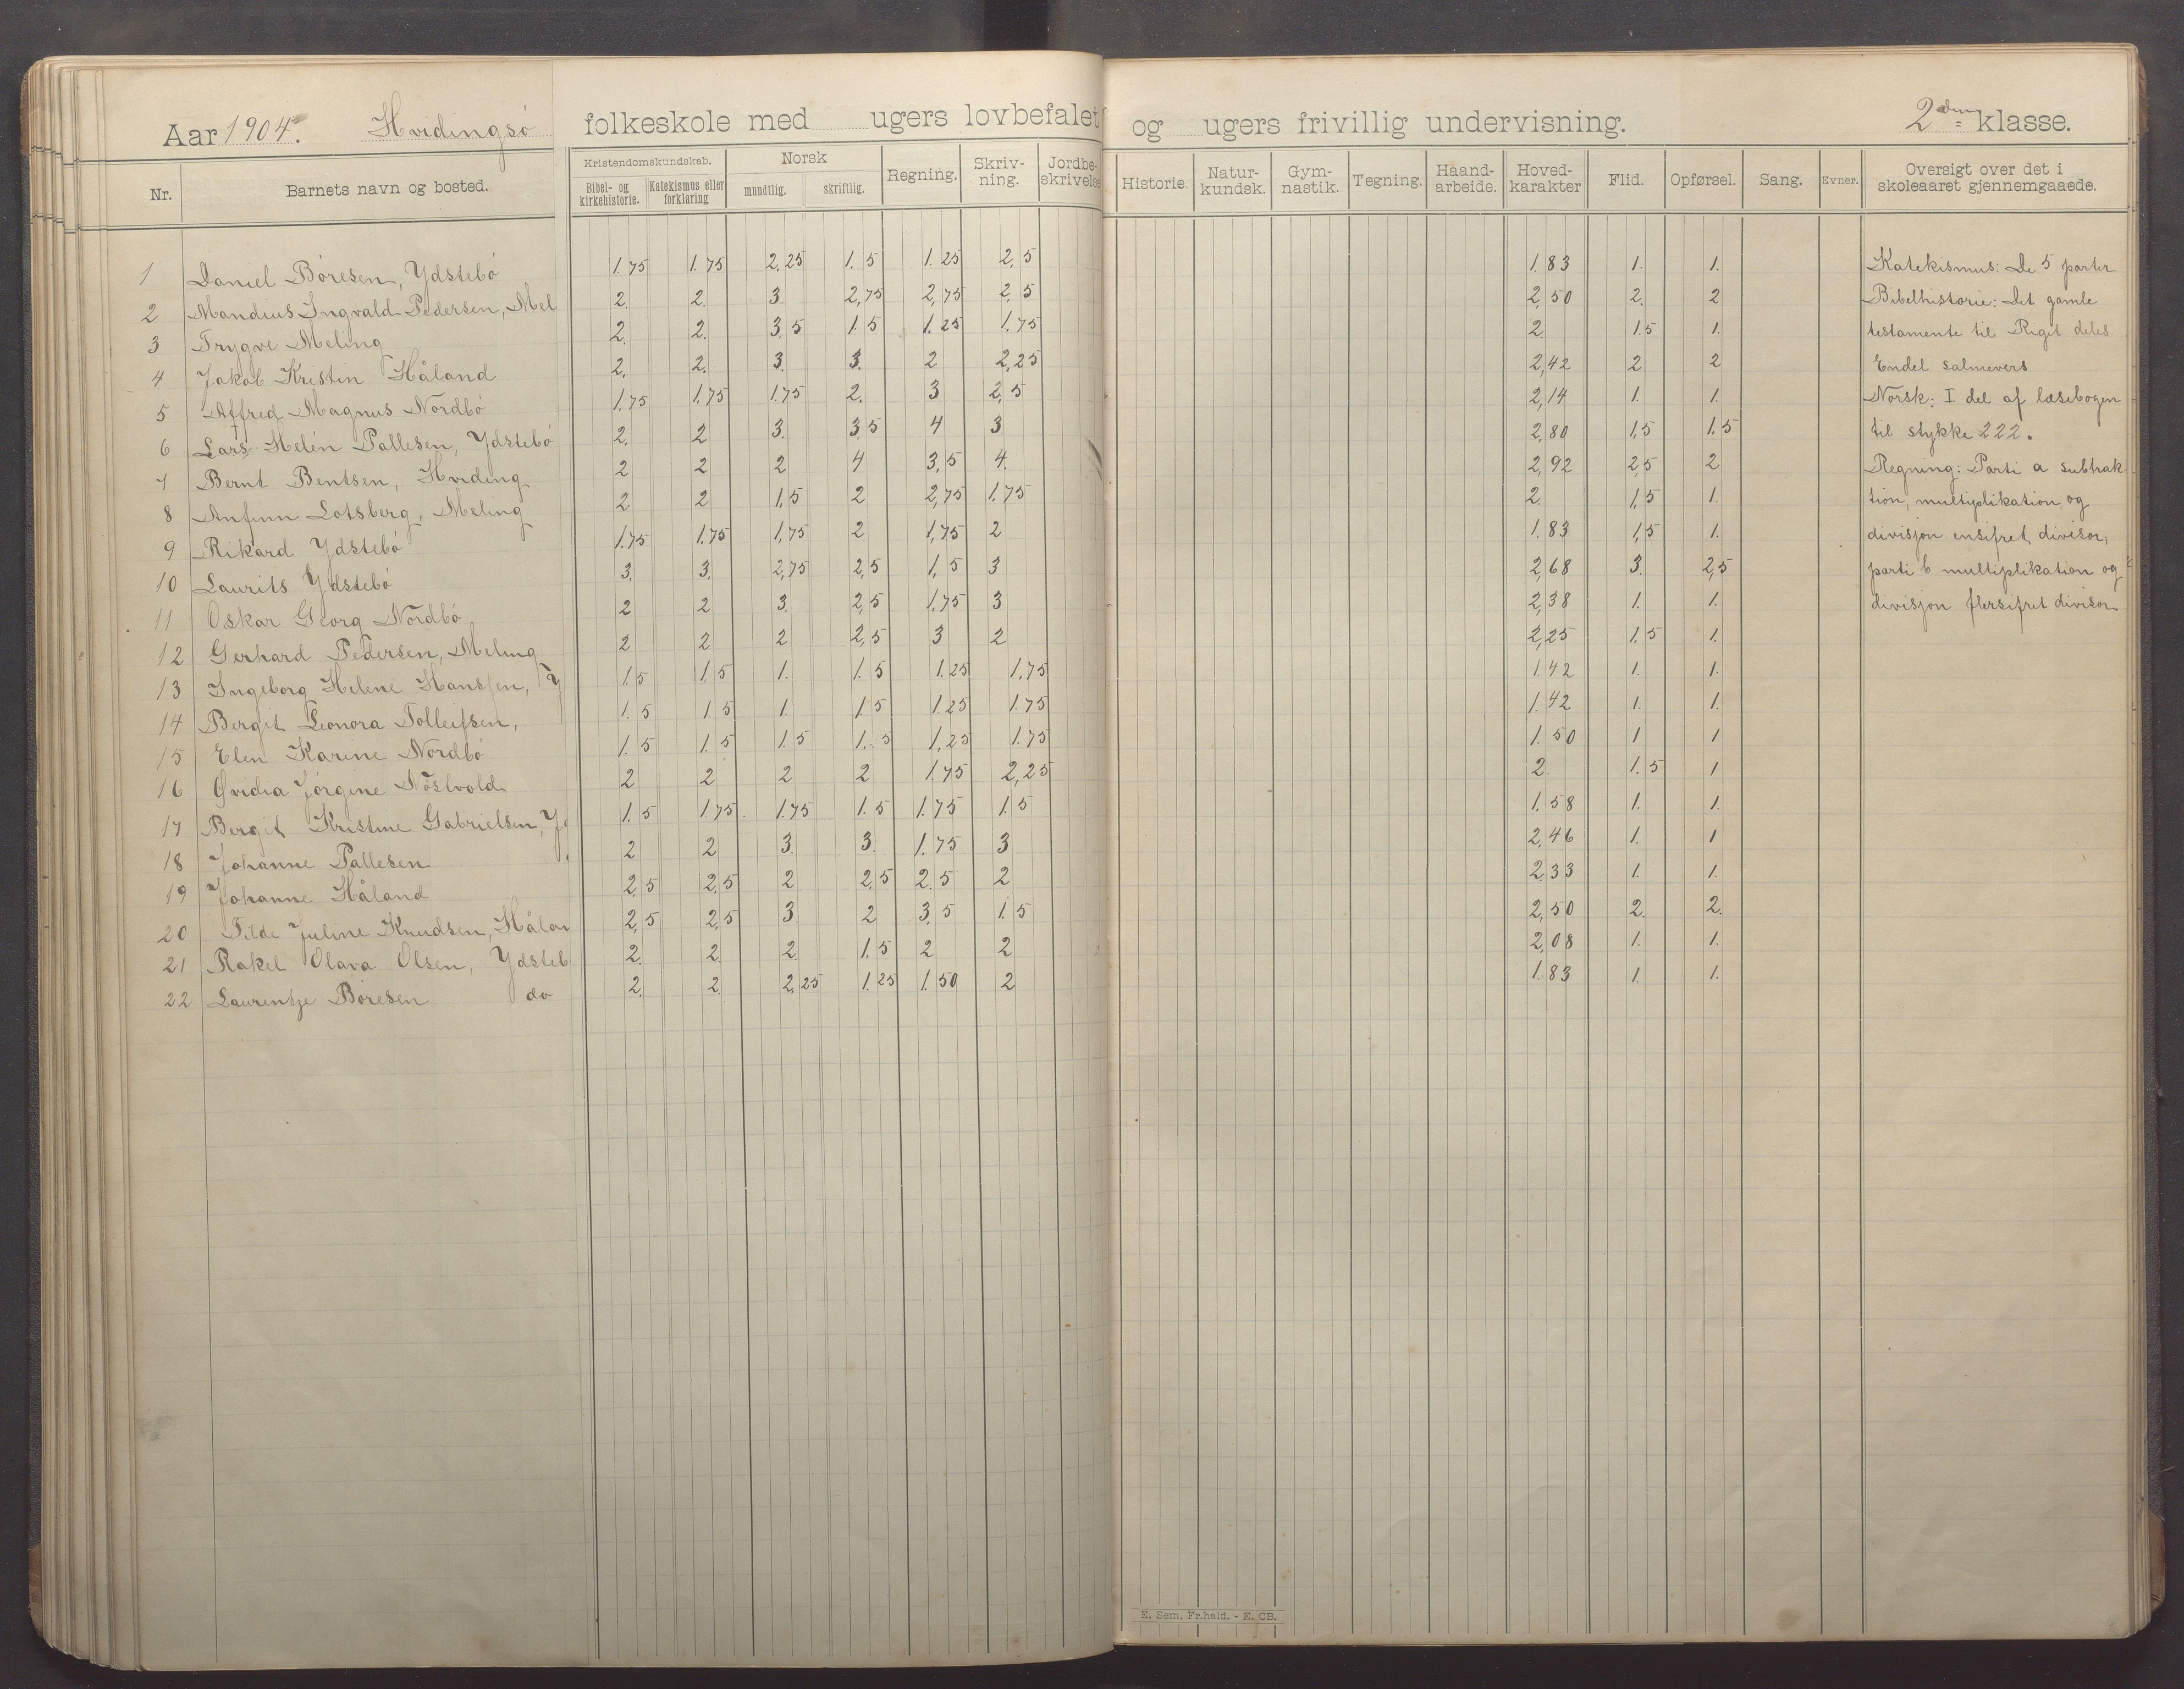 Aar 1904. Hvidingsö folkeskole med ugers lovbefalet og ugers frivillig undervisning. 2den klasse.
Nr. Barnets navn og bosted. Kristendomskundskab. Bibel- og kirkehistorie. Katekismus eller forklaring Norsk mundtlig. skriftlig. Regning. Skriv-ning. Jordbe-skrivelse Historie. Natur-kundsk. Gym-nastik. Tegning. Haand-arbeide. Hoved-karakter Flid. Opførsel. Sang. Evner. Oversigt over det i skoleaaret gjennemgaaede.
1 Daniel Böresen, Ydstebö 1.75 1.75 2,25 1.5 1.25 2,5 1.83 1. 1. Katekismus: De 5 parter
2 Mandius Ingvald Pedersen, Mel 2. 2. 3. 2,75 2,75 2,5 2,50 2. 2 Bibelhistorie: Det gamle
3 Trygve Meling 2. 2. 3.5 1.5 1.25 1.75 2. 1.5 1. testamente til Riget deles.
4 Jakob Kristin Håland 2. 2. 3. 3. 2 2,25 2,42 2 2 Endel salmevers
5 Alfred Magnus Nordbö 1.75 1.75 1.75 2. 3 2,5 2,14 1. 1. Norsk: I del af læsebogen
6 Lars Helén Pallesen, Ydstebö 2. 2 3. 3.5 4 3 2,80 1,5 1.5 til stykke 222.
7 Bernt Bentsen, Hviding 2 2 2 4 3,5 4. 2,92 2,5 2 Regning: Parti a subtrak-
8 Anfinn Lotsberg, Meling 2. 2 1,5 2 2,75 1.75 2. 1,5 1. tion, multiplikation og
9 Rikard Ydstebö 1.75 1.75 1,75 2 1,75 2 1.83 1,5 1. divisjon ensifret divisor,
10 Laurits Ydstebö 3. 3. 2,75 2,5 1,5 3 2,68 3. 2,5 parti b multiplikation og
11 Oskar Georg Nordbö 2 2 3. 2,5 1,75 3 2,38 1. 1. divisjon flersifret divisor
12 Gerhard Pedersen, Meling 2 2 2 2,5 3 2 2,25 1.5 1.
13 Ingeborg Helene Hanssen, Y 1.5 1.5 1. 1.5 1.25 1.75 1.42 1. 1.
14 Bergit Leonora Tolleifsen, 1.5 1.5 1. 1.5 1.25 1.75 1.42 1. 1.
15 Elen Karine Nordbö 1.5 1.5 1.5 1.5 1,25 1.75 1.50 1 1
16 Ovidia Jörgine Nöstvold 2 2 2 2 1.75 2,25 2. 1.5 1
17 Bergit Kristine Gabrielsen, Yd 1.5 1.75 1.75 1.5 1.75 1.5 1.58 1. 1.
18 Johanne Pallesen 2 2 3. 3. 1.75 3 2,46 1. 1
19 Johanne Håland 2,5 2,5 2 2,5 2.5 2 2.33 1. 1.
20 Tilde Juline Knudsen, Hålan 2,5 2,5 3. 2 3.5 1.5 2,50 2. 2.
21 Rakel Olava Olsen, Ydsteb 2. 2. 2. 1,5 2 2 2,08 1. 1.
22 Laurentze Böresen do 2. 2. 2,25 1.25 1.50 2 1.83 1. 1.
E. Sem, Fr.hald. - E. CB.